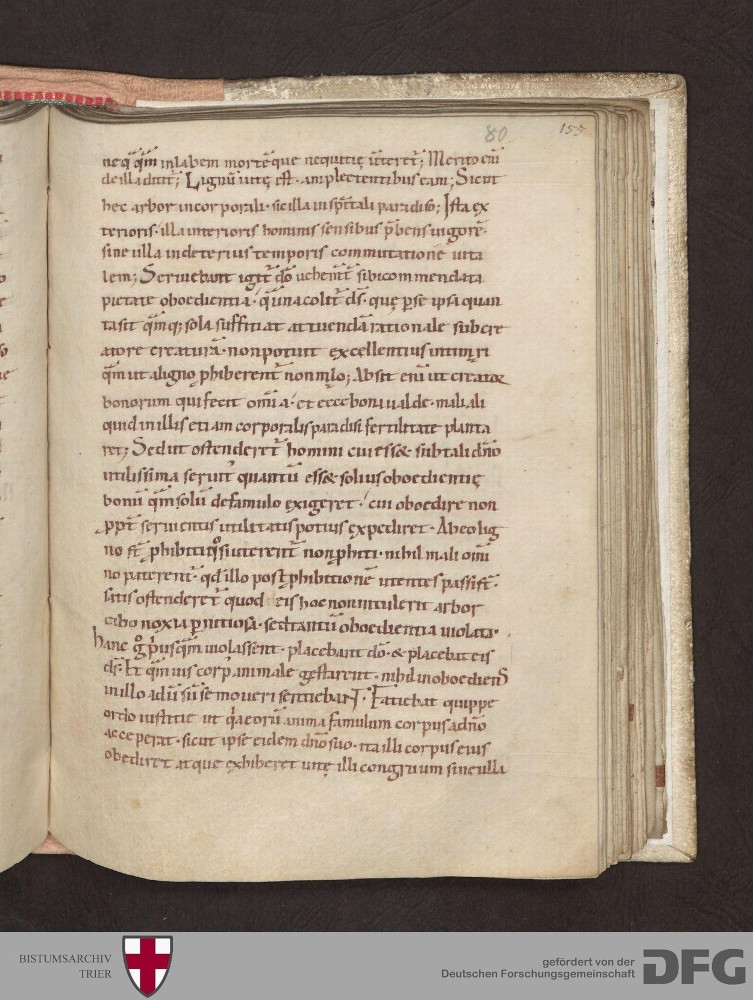 80
155
neq q̄m inlabem mortēque nequitię ūteret̄; Merito eni
deilla dicit̄; Lignū uitę est· amplectentibus eam; Sicut
hec arbor incorporali· sic illa in sp̄tali paradiso; Ista ex
terioris· illa interioris hominis sensibus p̄bens uigorē·
sine ulla indeterius temporis commutatione uita
lem; Seruiebant igit̄ dō uehemt̄ sibi commendata
pietate oboedientia· qua una colit̄ ds̄· que p̄se ipsa quan
tasit q̄mq; sola suffitiat attuendā rationale subcre
atore creaturā· non potuit excellentius intimari
q̄m ut aligno ꝓhiberent̄ non malo; Absit eni ut creator
bonorum qui fecit om̄ia· et ecce bona ualde· mali ali
quid in illis etiam corporalis paradisi fertilitate planta
ret; Sed ut ostenderet̄ homini cui ess& sub tali dn̄o
utilissima seruit̾ quantū ess& solius oboedientię
bonū q̄m solū defamulo exigeret· cui oboedire non
ꝓpt̄ seruientis utilitatis potius expediret· Abeo lig
no st̄ ꝓhibiti quo si uterent̄ non ꝓhiti· nihil mali om̄i
no paterent̄· qd̄ illo post ꝓhibitionē utentes passi st̄·
satis ostenderet̄ quod eis hoc non intulerit arbor
cibo noxia p̄nitiosa· sed tantū oboedientia uiolata·
hanc g̊ p̾usq̄m uiolassent· placebant dō· & placebat eis
ds̄· Et q̄m uis corp̾ animale gestarent· nihil inoboediens
in illo adū sū se moueri sentiebant· Fatiebat quippe
ordo iustitię ut q̾a eorū anima famulum corpus adn̄o
acceperat· sicut ipse eidem dn̄o suo· ita illi corpus eius
obediret atque exhiberet uitę illi congruum sine ulla
BISTUMSARCHIV
TRIER
gefördert von der
Deutschen Forschungsgemeinschaft
DFG